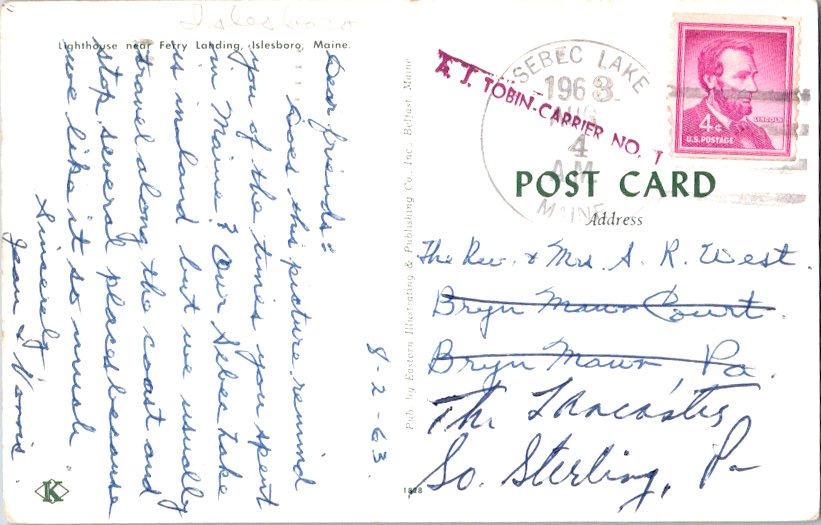 Islesboro
Lighthouse near Ferry Landing, Islesboro, Maine.
Dear friends:
Does this picture remind
you of the times you spent
in Maine? Our Sebec Lake
is inland but we usually
travel along the coast and
stop several places because
we like it so much
Sincerely
Jean & Norris
8-2-63.
Pub. by Eastern Illustrating & Publishing Co., Inc., Belfast, Maine
K
1828
SEBEC LAKE
1963
AUG
4
AM
MAINE
A. J. TOBIN-CARRIER NO. 1
LINCOLN
4¢
U.S. POSTAGE
POST CARD
Address
The Rev. & Mrs. A. R. West.
Bryn Mawr Court.
Bryn Mawr, Pa.
The Lancasters
So. Sterling, Pa